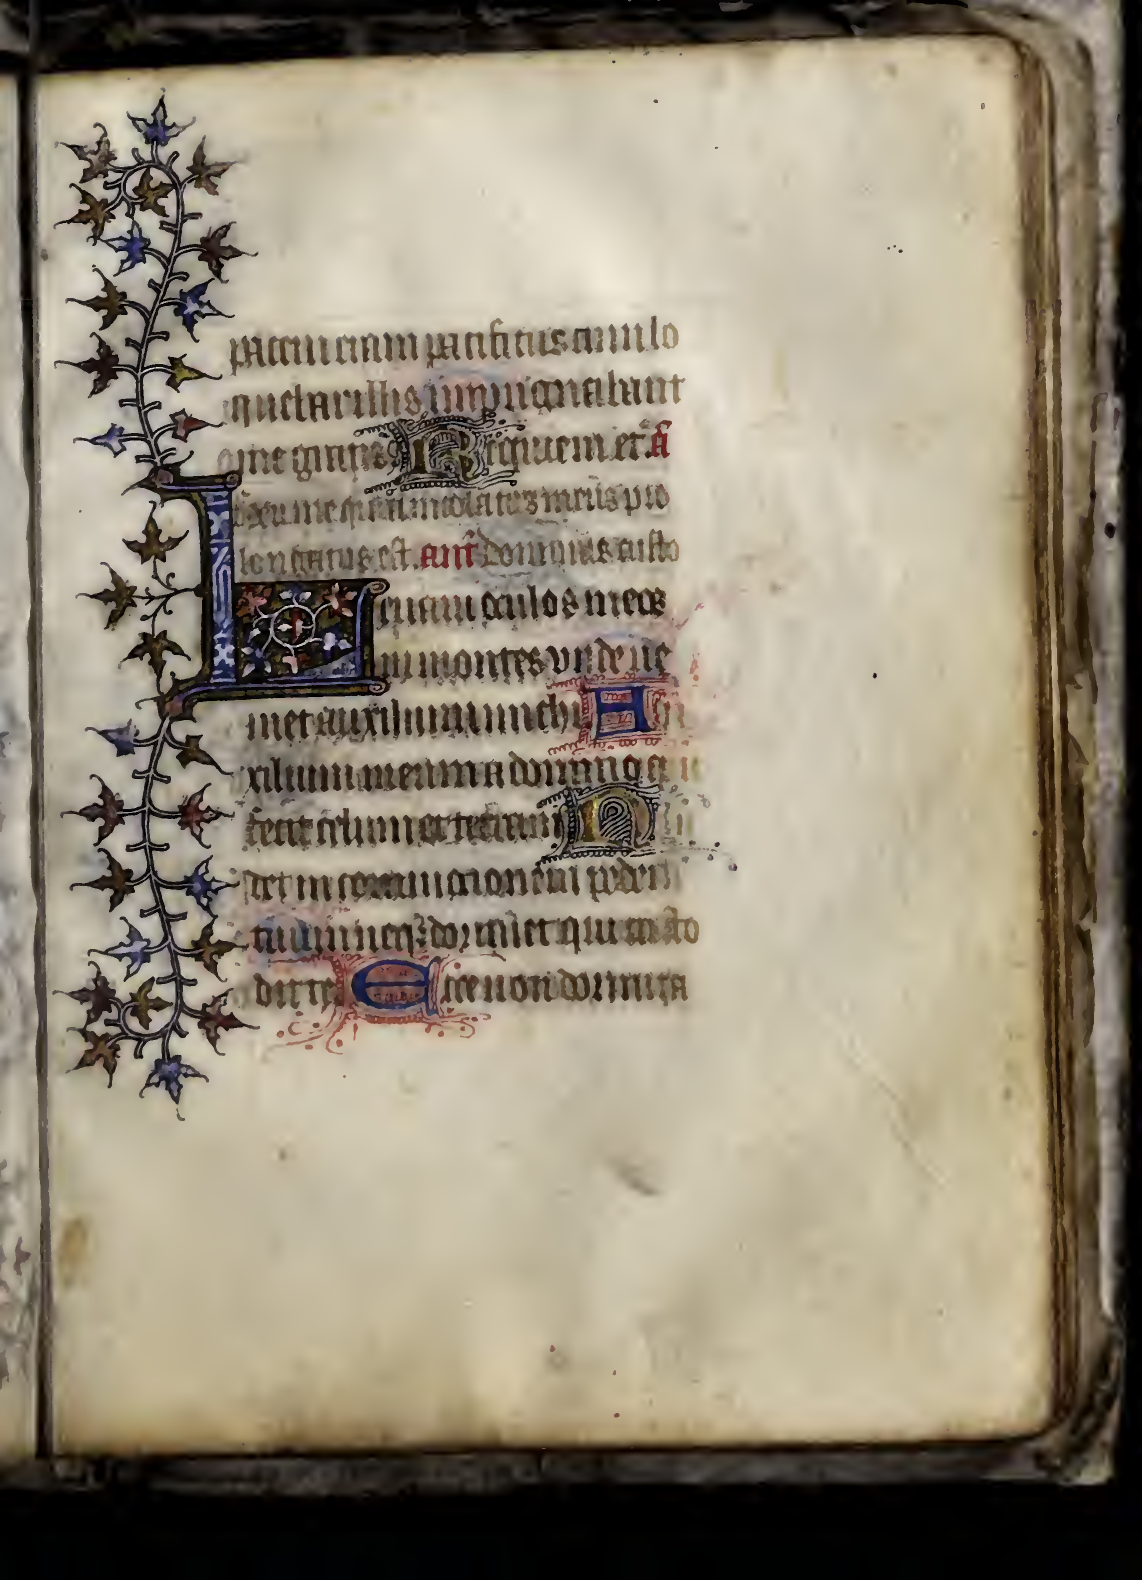 pacem eram pacificus cum lo
quebar illis inpugnabant
me gratis Requiem et.
me quia incolatus meus pro
longatus est. ant dominus custo
Leuaui oculos meos
in montes unde ue
niet auxilium michi Au
xilium meum a domino qui
fecit celum et terram Non
det in commocionem pedem
tuum neqꝫ dormiet qui custo
dit te Ecce non dormita